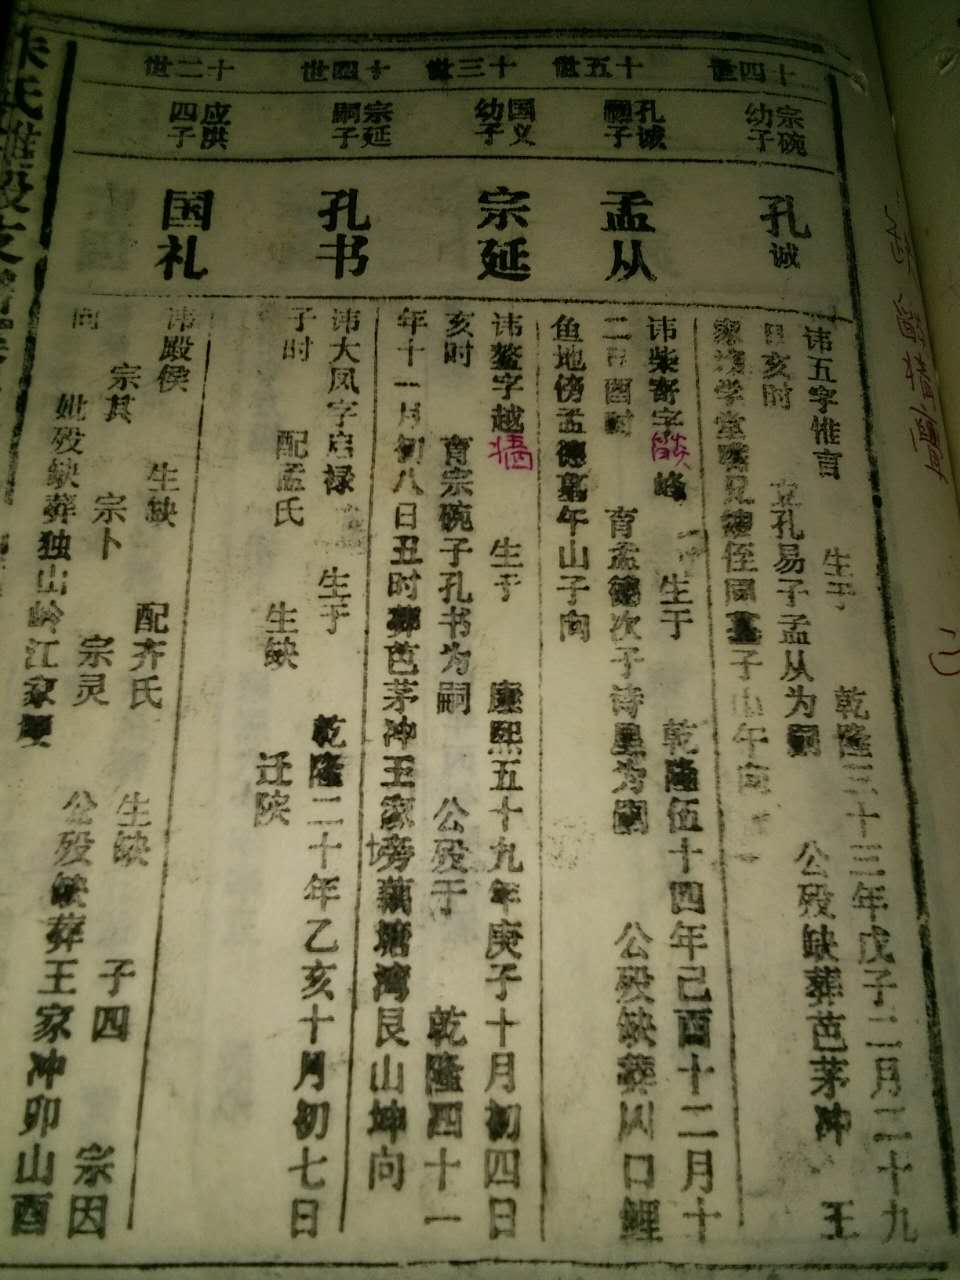 十四世
宗碗
幼子
孔诚
讳五字惟言 生于 乾隆三十三年戊子二月二十九
日亥时 立孔易子孟从为嗣 公殁缺葬芭茅冲 王
家坟学堂 兄 侄同墓子山午向
十五世
孔诚
嗣子
孟从
讳柴寄字 峰 生于 乾隆伍十四年己酉十二月十
二日酉时 育孟德次子诗里为嗣 公殁缺葬风口鲤
鱼地傍孟德墓午山子向
十三世
国义
幼子
宗延
讳鳌字越 生于 康熙五十九年庚子十月初四日
亥时 育宗碗子孔书为嗣 公殁于 乾隆四十一
年十一月初八日丑时葬芭茅冲王家坊旁藕塘湾艮山坤向
十四世
宗延
嗣子
孔书
讳大凤字启禄 生于 乾隆二十年乙亥十月初七日
子时 配孟氏 生缺 迁陕
十二世
应洪
四子
国礼
讳殿侯 生缺 配齐氏 生缺 子四 宗因
宗其 宗卜 宗灵 公殁缺葬王家冲卯山酉
向 妣殁缺葬独山岭江家
朱氏